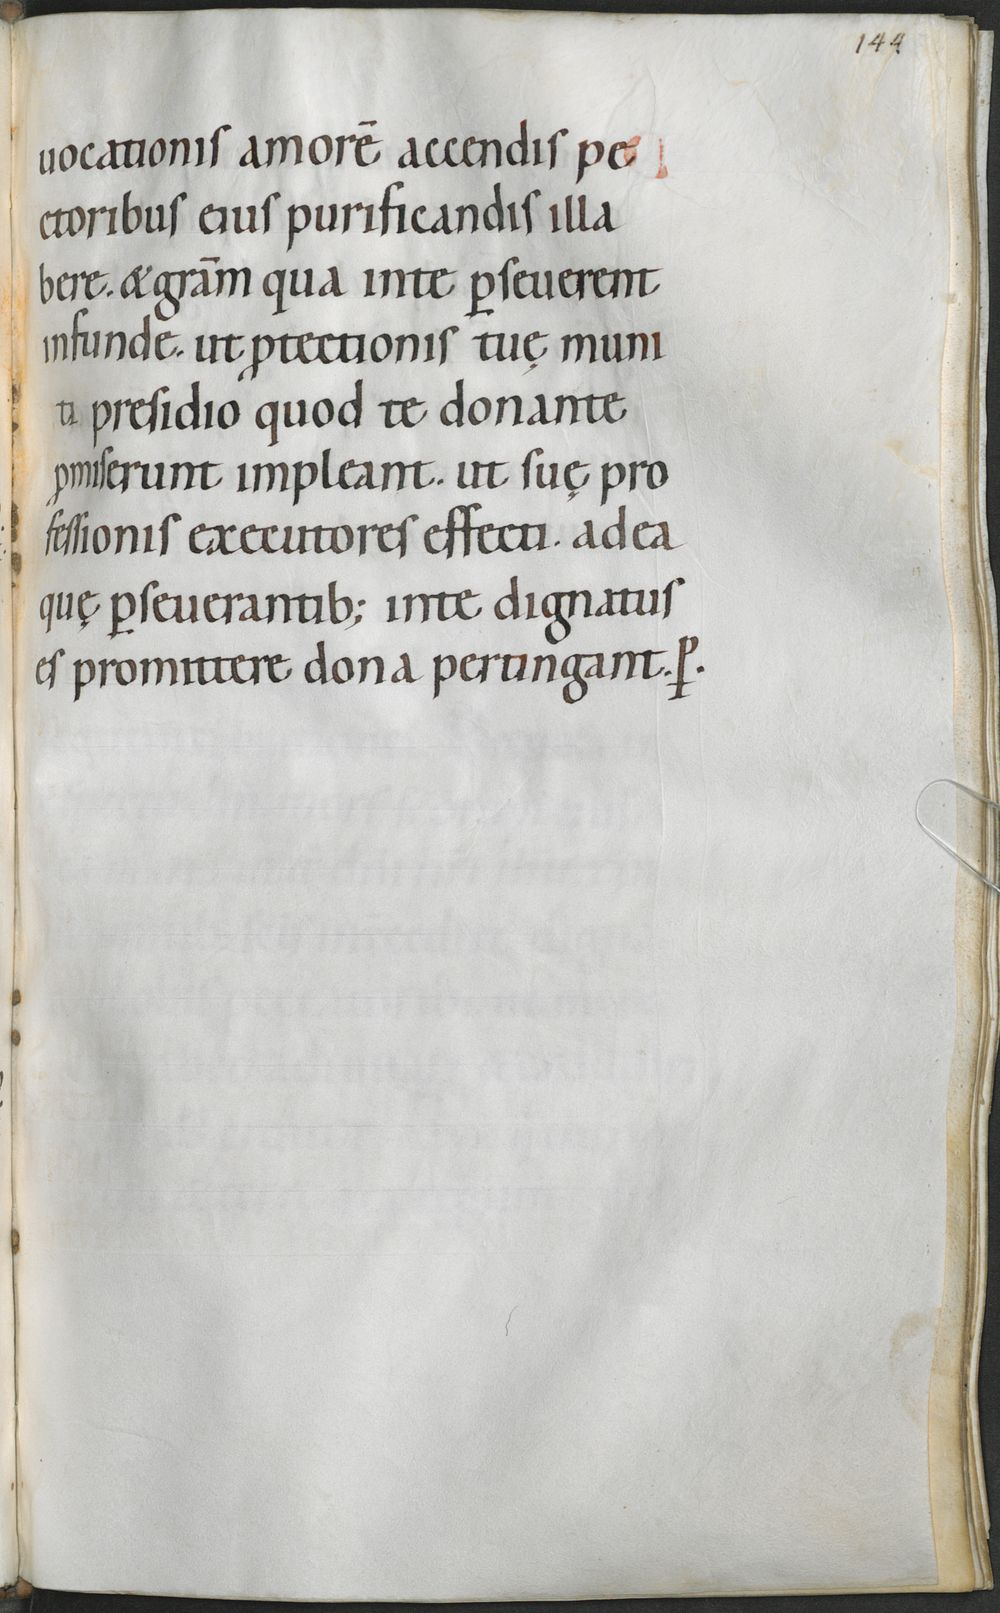 144
uocationis amorē accendis pe
ctoribus eius purificandis illa
bere. & grām qua inte ꝑseuerent
infunde. ut ꝓtectionis tuę muni
ti presidio quod te donante
ꝓmiserunt impleant. ut suę pro
fessionis executores effecti. adea
quę ꝑseuerantib; inte dignatus
es promittere dona pertingant. ꝑ.